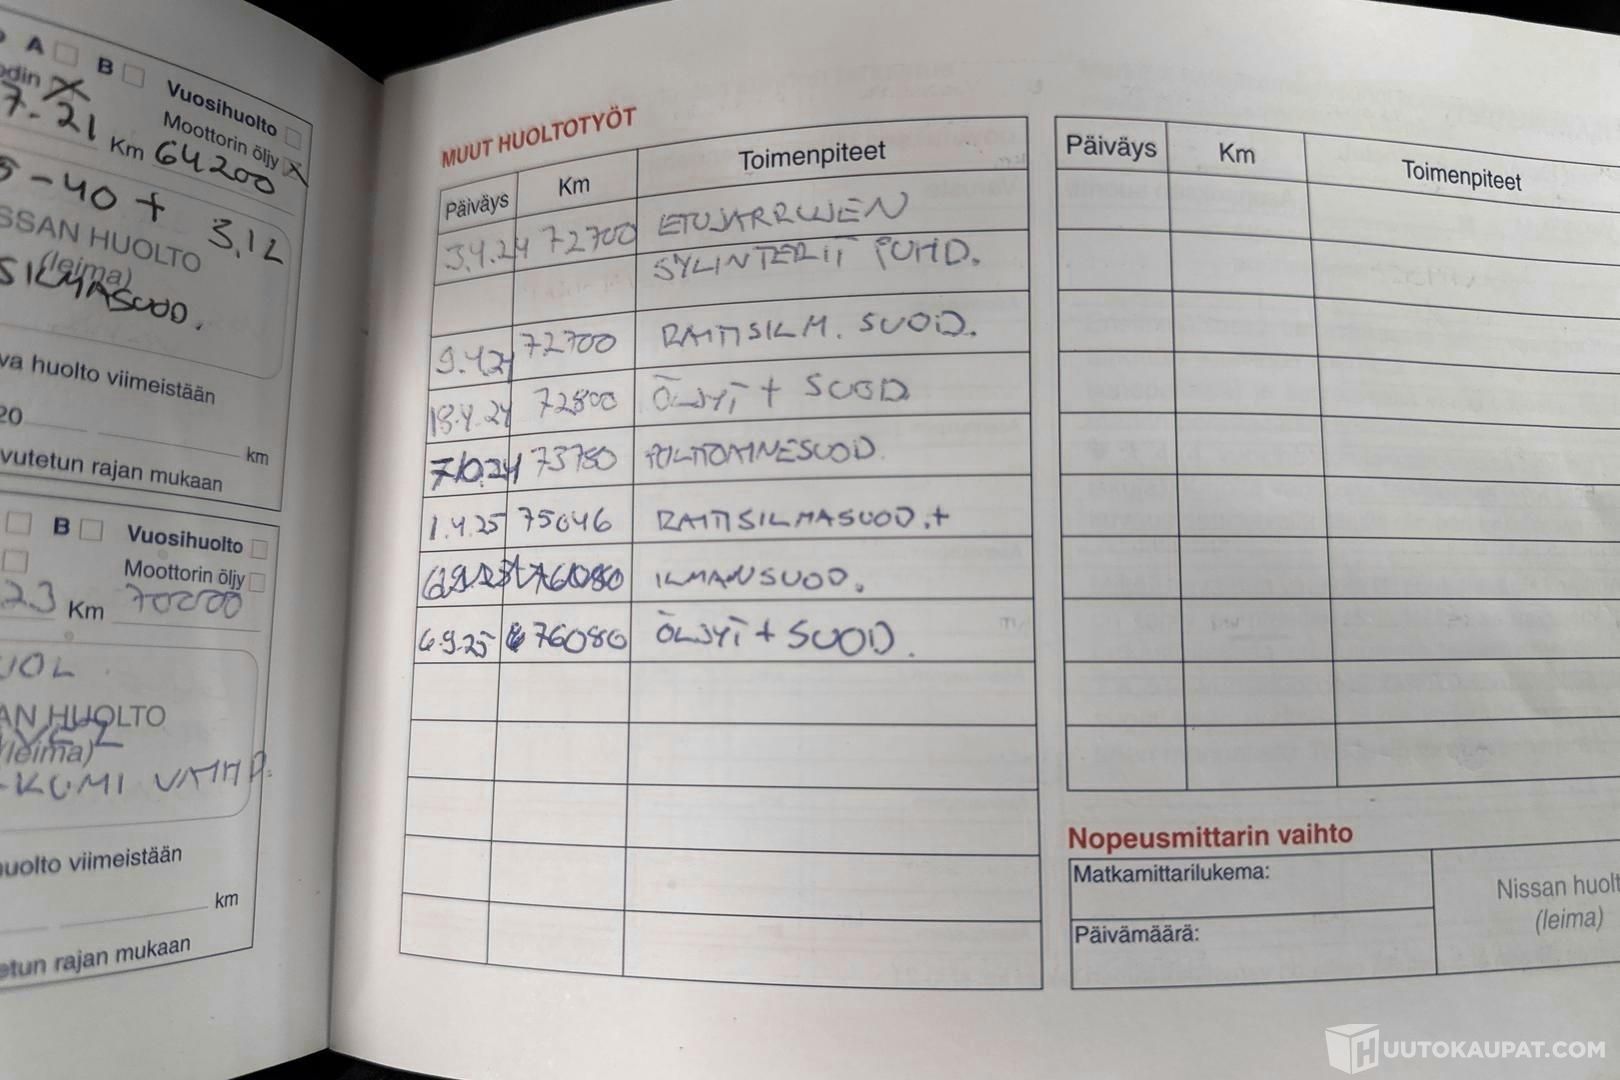 A B Vuosihuolto
Moottorin öljy X
7-21 Km 64200
5-40 + 3,1L
SSAN HUOLTO
(leima)
SILMASUOD.
va huolto viimeistään
20
km
vutetun rajan mukaan
B Vuosihuolto
Moottorin öljy
23 Km 70200
AN HUOLTO
(leima)
-KUMI VAIHD.
huolto viimeistään
km
etun rajan mukaan
MUUT HUOLTOTYÖT
Päiväys Km Toimenpiteet
3.4.24 72700 ETUJARRUJEN
SYLINTERIT PUHD.
9.4.24 72700 RAITISILM. SUOD.
18.4.24 72800 ÖLJYT + SUOD
7.10.24 73780 POLTTOAINESUOD.
1.4.25 75046 RAITISILMASUOD.+
76080 ILMANSUOD.
6.9.25 76080 ÖLJYT + SUOD.
Päiväys Km Toimenpiteet
Nopeusmittarin vaihto
Matkamittarilukema:
Päivämäärä:
Nissan huolt
(leima)
HUUTOKAUPAT.COM